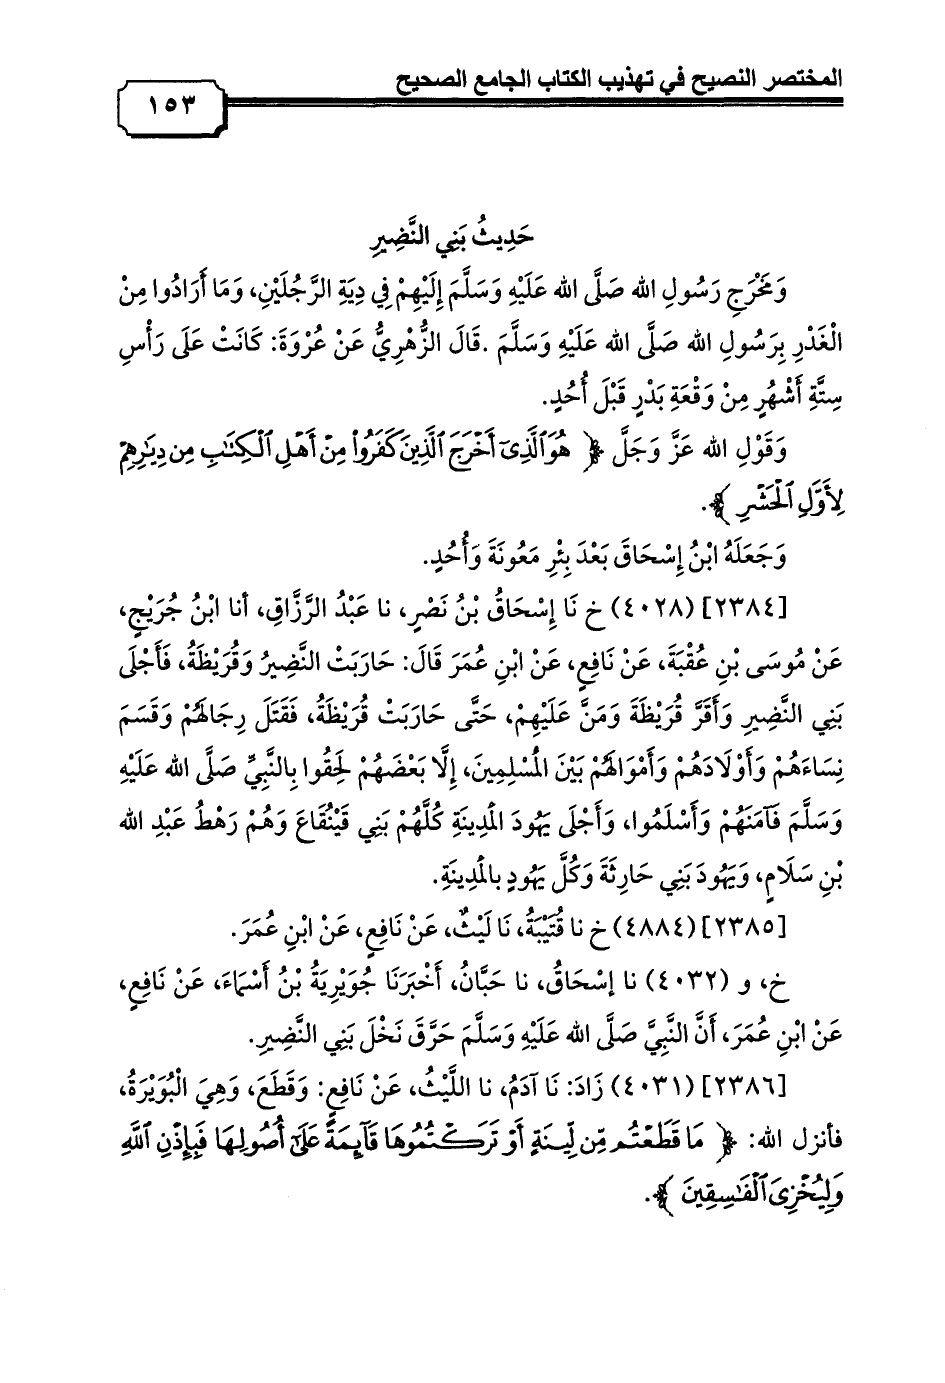 المختصر النصيح في تهذيب الكتاب الجامع الصحيح
١٥٣
حَدِيثُ بَنِي النَّضِيرِ
وَمَخْرَجِ رَسُولِ الله صَلَّى الله عَلَيْهِ وَسَلَّمَ إِلَيْهِمْ فِي دِيَةِ الرَّجُلَيْنِ، وَمَا أَرَادُوا مِنْ
الْغَدْرِ بِرَسُولِ الله صَلَّى الله عَلَيْهِ وَسَلَّمَ .قَالَ الزُّهْرِيُّ عَنْ عُرْوَةَ: كَانَتْ عَلَى رَأْسِ
سِتَّةِ أَشْهُرٍ مِنْ وَقْعَةِ بَدْرٍ قَبْلَ أُحُدٍ.
وَقَوْلِ الله عَزَّ وَجَلَّ ﴿ هُوَ ٱلَّذِىٓ أَخْرَجَ ٱلَّذِينَ كَفَرُوا۟ مِنْ أَهْلِ ٱلْكِتَٰبِ مِن دِيَٰرِهِمْ
لِأَوَّلِ ٱلْحَشْرِ ﴾.
وَجَعَلَهُ ابْنُ إِسْحَاقَ بَعْدَ بِئْرِ مَعُونَةَ وَأُحُدٍ.
[٢٣٨٤] (٤٠٢٨) خ نَا إِسْحَاقُ بْنُ نَصْرٍ، نا عَبْدُ الرَّزَّاقِ، أنا ابْنُ جُرَيْجٍ،
عَنْ مُوسَى بْنِ عُقْبَةَ، عَنْ نَافِعٍ، عَنْ ابْنِ عُمَرَ قَالَ: حَارَبَتْ النَّضِيرُ وَقُرَيْظَةُ، فَأَجْلَى
بَنِي النَّضِيرِ وَأَقَرَّ قُرَيْظَةَ وَمَنَّ عَلَيْهِمْ، حَتَّى حَارَبَتْ قُرَيْظَةُ، فَقَتَلَ رِجَالَهُمْ وَقَسَمَ
نِسَاءَهُمْ وَأَوْلَادَهُمْ وَأَمْوَالَهُمْ بَيْنَ الْمُسْلِمِينَ، إِلَّا بَعْضَهُمْ لَحِقُوا بِالنَّبِيِّ صَلَّى الله عَلَيْهِ
وَسَلَّمَ فَآمَنَهُمْ وَأَسْلَمُوا، وَأَجْلَى يَهُودَ الْمَدِينَةِ كُلَّهُمْ بَنِي قَيْنُقَاعَ وَهُمْ رَهْطُ عَبْدِ الله
بْنِ سَلَامٍ، وَيَهُودَ بَنِي حَارِثَةَ وَكُلَّ يَهُودٍ بالْمَدِينَةِ.
[٢٣٨٥] (٤٨٨٤) خ نا قُتَيْبَةُ، نَا لَيْثٌ، عَنْ نَافِعٍ، عَنْ ابْنِ عُمَرَ.
خ، و (٤٠٣٢) نا إسْحَاقُ، نا حَبَّانُ، أَخْبَرَنَا جُوَيْرِيَةُ بْنُ أَسْمَاءَ، عَنْ نَافِعٍ،
عَنْ ابْنِ عُمَرَ، أَنَّ النَّبِيَّ صَلَّى الله عَلَيْهِ وَسَلَّمَ حَرَّقَ نَخْلَ بَنِي النَّضِيرِ.
[٢٣٨٦] (٤٠٣١) زَادَ: نَا آدَمُ، نا اللَّيْثُ، عَنْ نَافِعٍ: وَقَطَعَ، وَهِيَ الْبُوَيْرَةُ،
فأنزل الله: ﴿ مَا قَطَعْتُم مِّن لِّينَةٍ أَوْ تَرَكْتُمُوهَا قَآئِمَةً عَلَىٰٓ أُصُولِهَا فَبِإِذْنِ ٱللَّهِ
وَلِيُخْزِىَ ٱلْفَٰسِقِينَ ﴾.